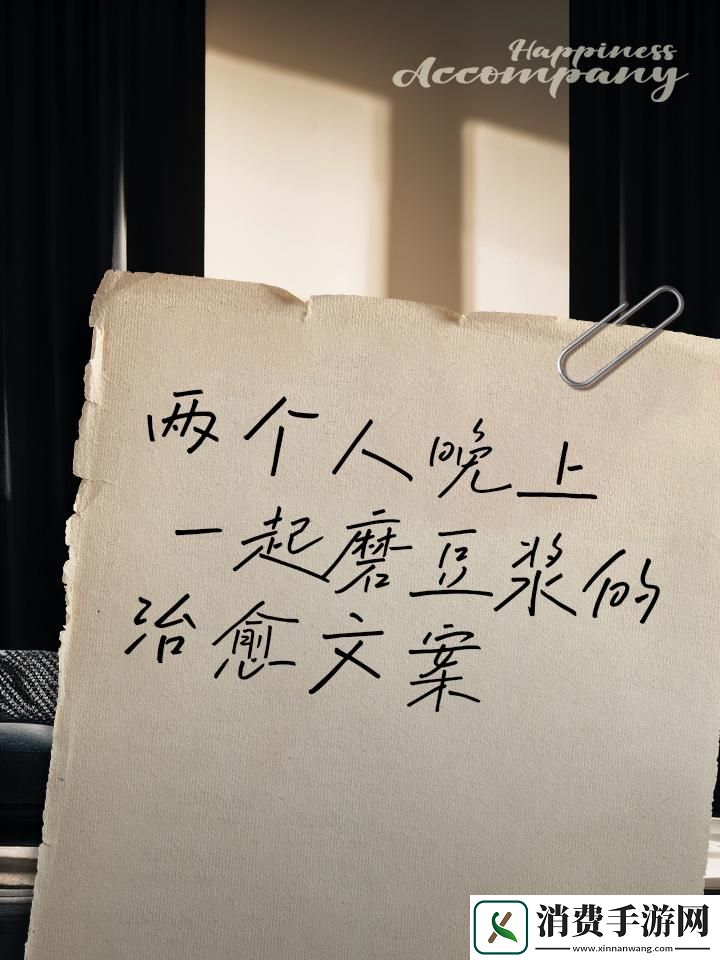 Happiness
Accompany
两个人晚上
一起磨豆浆的
治愈文案
消费手游网
www.xinnanwang.com